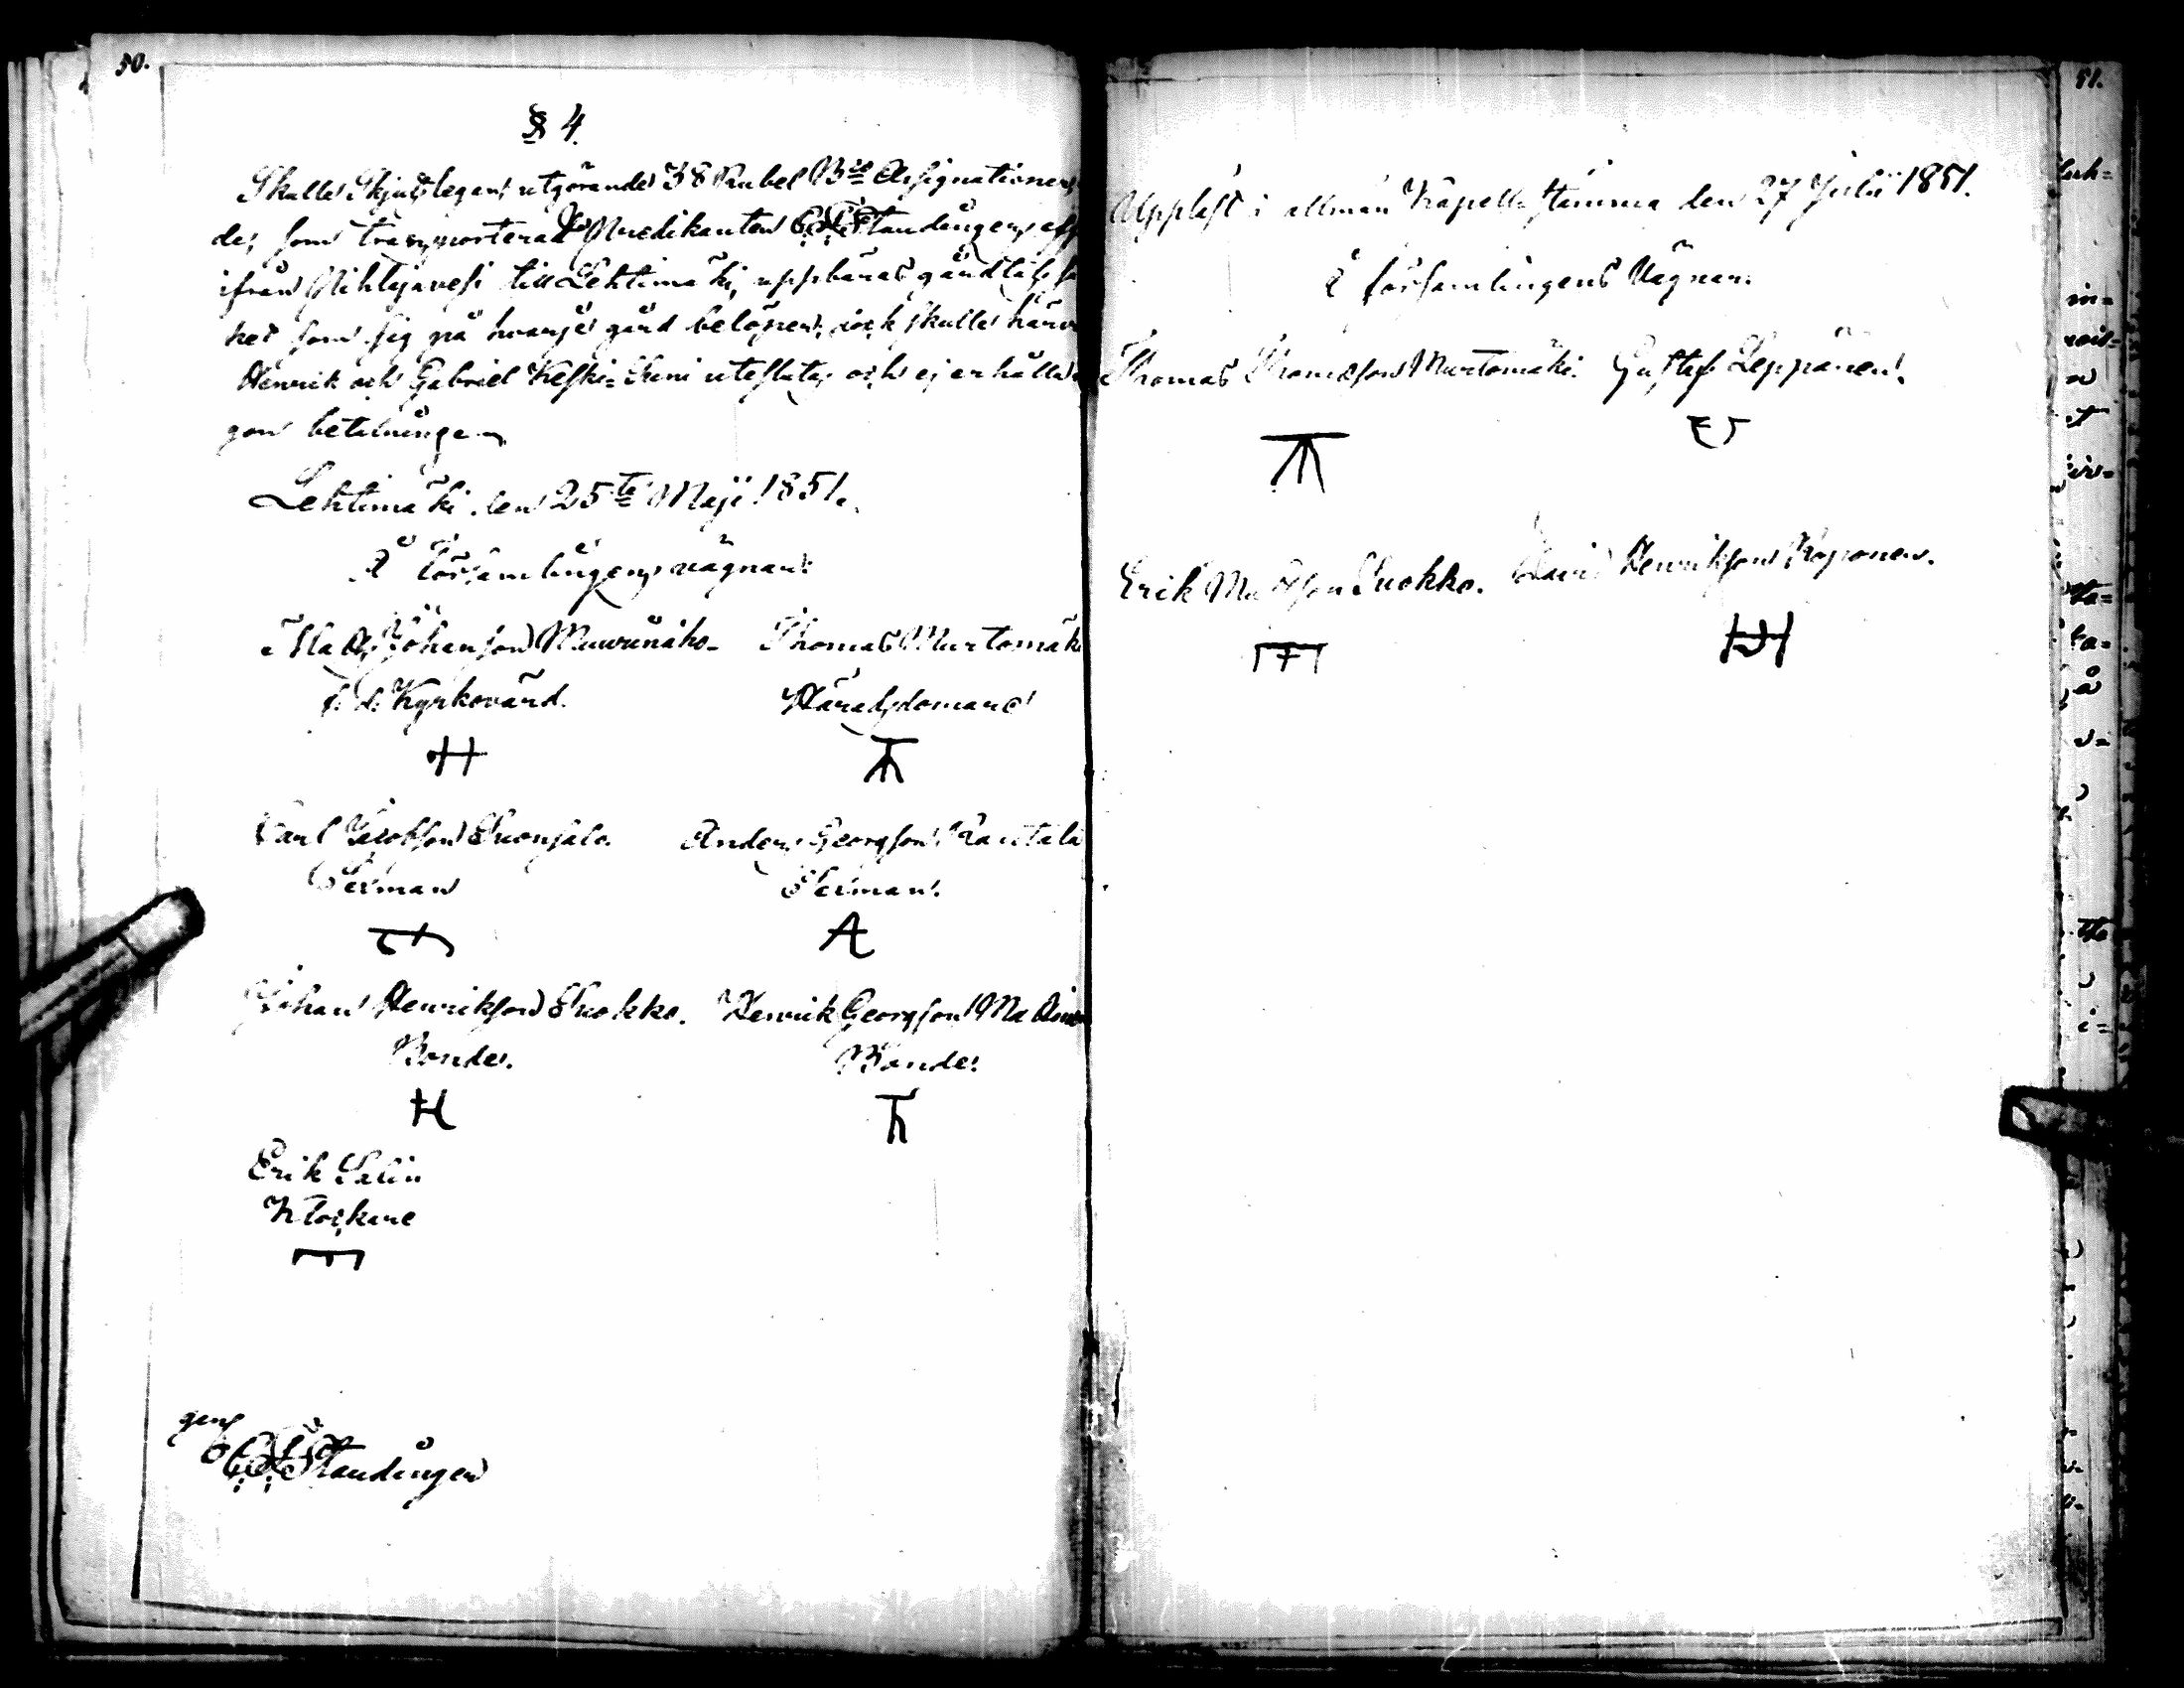 50.
§ 4.
Skulle Skjutslegan, utgörande 38 Rubel B:co Assignationer,
de, som transporterade Predikanten C. A. Standingers eff
ifrån Pihlajavesi till Lehtimäki, uppbäras gårdtals, så
ket som sig på hvarje gård belöper, och skulle härv
Henrik och Gabriel Keski-Suni uteslutas och ej erhålla
gon betalning.
Lehtimäki den 25te Maji 1851.
Å Församlingens vägnar:
Matts Johansson Thomas Murtomäki
f. d. Kyrkovärd. Häradsdomare
Carl Jacobsson Suonsalo. Anders Georgsson Rantala
Sexman Sexman.
Johan Henriksson Suokko. Henrik Georgsson
Bonde. Bonde.
Erik Salin
Klockare
Standinger
51.
Uppläst i allmän Kapellstämma den 27 Julii 1851.
Å församlingens Vägnar:
Thomas Thomasson Murtomäki. Gustaf Leppänen.
Erik Mattsson Suokko. David Henriksson Koponen.